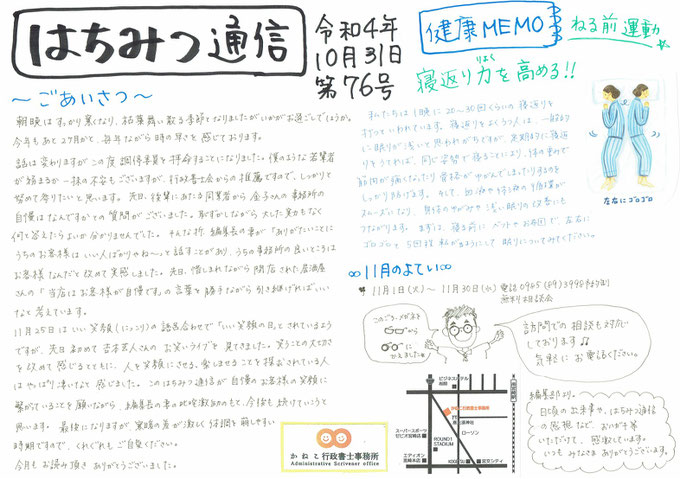 はちみつ通信
令和4年
10月31日
第76号
健康MEMO
ねる前運動
寝返り力を高める!!
りょく
～ごあいさつ～
朝晩はすっかり寒くなり、枯葉舞い散る季節となりましたがいかがお過ごしでしょうか。
今年もあと2ヶ月かと、毎年ながら時の早さを感じております。
話は変わりますがこの度、調停委員を拝命することになりました。僕のような若輩者
が務まるか一抹の不安もございますが、行政書士会からの推薦ですので、しっかりと
努めて参りたいと思います。先日、後輩にあたる同業者から、金子さんの事務所の
自慢はなんですかとの質問がございました。恥ずかしながら大した実力もなく
何と答えたらよいか分かりませんでした。そんな折、編集長の妻が「ありがたいことに
うちのお客様はいい人ばかりやね～」と話すことがあり、うちの事務所の良いところは
お客様なんだと改めて実感しました。先日、惜しまれながら閉店された居酒屋
さんの「当店はお客様が自慢です。」の言葉を勝手ながら引き継げればいい
なと考えています。
11月25日はいい笑顔(にっこり)の語呂合わせで「いい笑顔の日」とされているよう
ですが、先日初めて吉本芸人さんのお笑いライブを見てきました。笑うことの大切さ
を改めて感じるとともに、人を笑顔にさせる、楽しませることを探求されている人
はやっぱり凄いなと感じました。このはちみつ通信が自慢のお客様の笑顔に
繋がっていることを願いながら、編集長の妻の叱咤激励のもと、今後も続けていこうと
思います。最後になりますが、寒暖の差が激しく体調を崩しやすい
時期ですので、くれぐれもご自愛ください。
今月もお読み頂きありがとうございました。
私たちは1晩に20～30回くらいの寝返りを
打つといわれています。寝返りをよくうつ人は、一般的
に眠りが浅いと思われがちですが、定期的に寝返
りをうてれば、同じ姿勢で寝ることにより、体の重みで
筋肉が痛くなったり骨格がゆがんでしまったりするのを
しっかり防げます。そして、血液や体液の循環が
スムーズになり、身体のゆがみや浅い眠りの改善にも
つながります。まずは、寝る前にベッドやお布団で、左右に
ゴロゴロと5回程転がるようにして眠りについてみてください。
左右にゴロゴロ
∞11月のよてい∞
11月1日(火)～11月30日(水)電話0985(89)3990
無料相談会
このごろ…メガネを
から
にかえました。
訪問での相談も対応
しております♫
気軽にお電話ください。
編集部より。
日頃の出来事や、はちみつ通信
の感想など、お心が手紙
いただけて、感謝しています。
いつもみなさまありがとうございます。
かねこ行政書士事務所
Administrative Scrivener office
ビジネスホテル
かねこ行政書士事務所
ローソン
スーパースポーツ
ゼビオ宮崎店
ROUND1
STADIUM
エディオン
宮崎本店